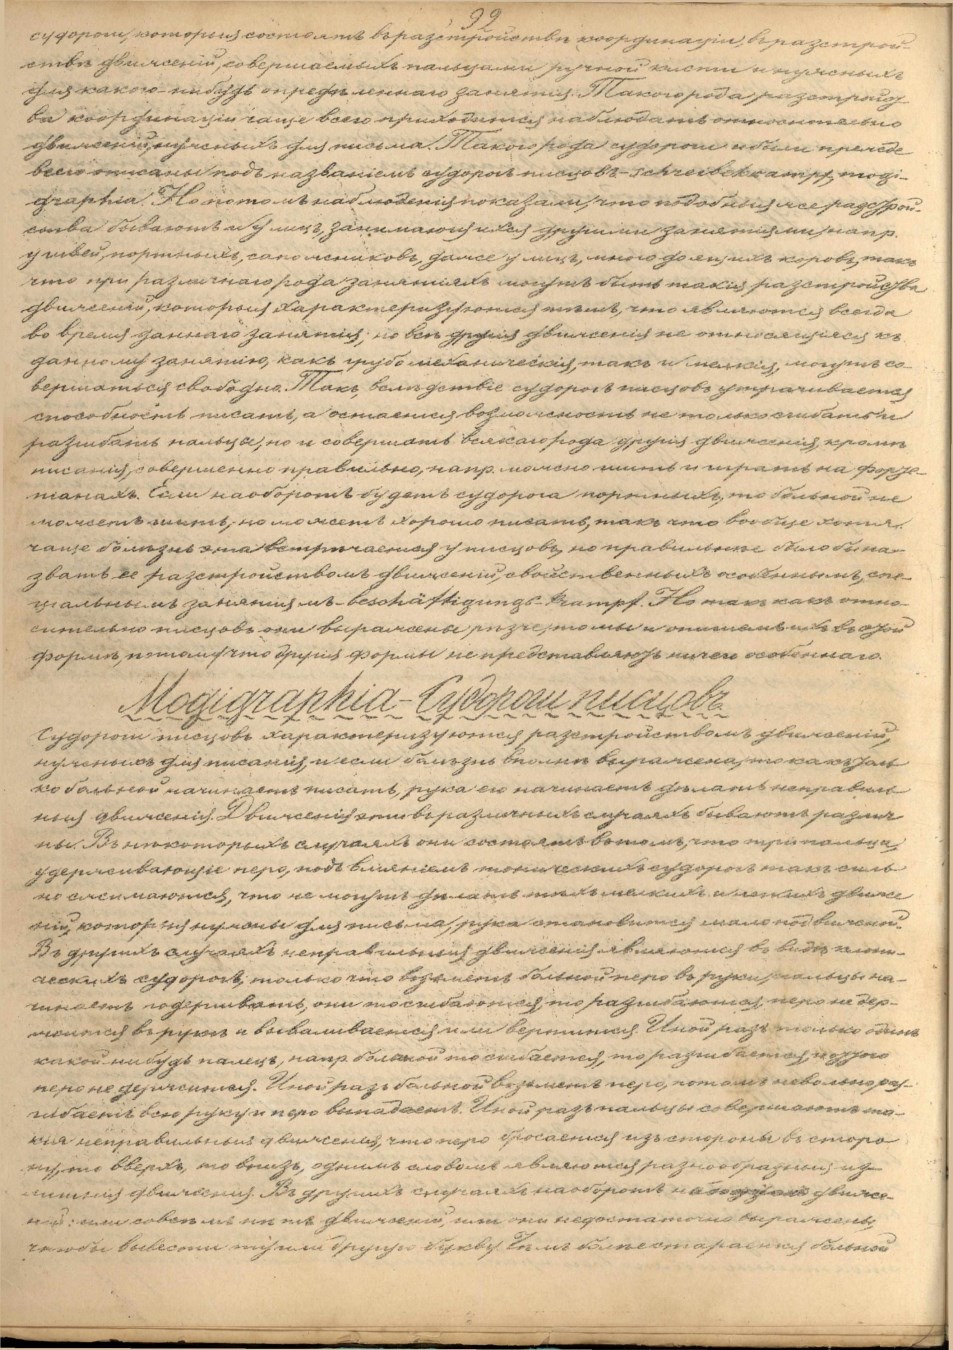 92
судороги, которыя состоятъ въ разстройствѣ координаціи, въ разстрой-
ствѣ движеній, совершаемыхъ пальцами ручной кисти и нужныхъ
для какого-нибудь опредѣленнаго занятія. Такого рода разстройст-
ва координаціи чаще всего приходится наблюдать относительно
движеній, нужныхъ для письма. Такого рода судороги и были прежде
всего описаны подъ названіемъ судорогъ писцовъ – Schreibekrampf, mogi-
graphia. Но потомъ наблюденія показали, что подобныя же разстрой-
ства бываютъ и у лицъ, занимающихся другими занятіями, напр.
у швей, портныхъ, сапожниковъ, даже у лицъ, много доящихъ коровъ, такъ
что при различнаго рода занятіяхъ могутъ быть такія разстройства
движеній, которыя характеризуются тѣмъ, что являются всегда
во время даннаго занятія, но всѣ другія движенія не относящіяся къ
данному занятію, какъ грубо механическія, такъ и мелкія, могутъ со-
вершаться свободно. Такъ, вслѣдствіе судорогъ писцовъ утрачивается
способность писать, а остается возможность не только сгибать и
разгибать пальцы, но и совершать всякаго рода другія движенія, кромѣ
писанія, совершенно правильно, напр. можно шить и играть на форте-
піанахъ. Если наоборотъ будетъ судорога портныхъ, то больной не
можетъ шить, но можетъ хорошо писать, такъ что вообще хотя
чаще болѣзнь эта встрѣчается у писцовъ, но правильнѣе было бы на-
звать ее разстройствомъ движеній, свойственныхъ особеннымъ, спе-
ціальнымъ занятіямъ – beschäftigungs-krampf. Но такъ какъ отно-
сительно писцовъ они выражены рѣзче, то мы и опишемъ ихъ въ этой
формѣ, потому что другія формы не представляютъ ничего особеннаго.
Mogigraphia – Судороги писцовъ
Судороги писцовъ характеризуются разстройствомъ движеній,
нужныхъ для писанія, и если болѣзнь вполнѣ выражена, то какъ толь
ко больной начинаетъ писать, рука его начинаетъ дѣлать неправиль
ныя движенія. Движенія эти въ различныхъ случаяхъ бываютъ различ
ны. Въ нѣкоторыхъ случаяхъ они состоятъ въ томъ, что три пальца,
удерживающіе перо, подъ вліяніемъ тоническихъ судорогъ такъ силь
но сжимаются, что не могутъ дѣлать тѣхъ мелкихъ и легкихъ движе
ній, которыя нужны для письма, рука становится мало подвижной.
Въ другихъ случаяхъ неправильныя движенія являются въ видѣ клони-
ческихъ судорогъ, только что возьметъ больной перо въ руки, пальцы на-
чинаетъ подергивать, они то сгибаются, то разгибаются, перо не дер-
жится въ рукѣ и вываливается или вертится. Иной разъ только одинъ
какой-нибудь палецъ, напр. большой то сгибается, то разгибается, и
перо не держится. Иной разъ больной возьметъ перо, потомъ невольно раз-
гибаетъ всю руку и перо выпадаетъ. Иной разъ пальцы совершаютъ та-
кія неправильныя движенія, что перо бросается изъ стороны въ сторо
ну, то вверхъ, то внизъ, однимъ словомъ являются разнообразныя из-
лишнія движенія. Въ другихъ случаяхъ наоборотъ движе-
ній: или совсѣмъ нѣтъ движеній, или они недостаточно выражены,
чтобы вывести ту или другую букву. Чѣмъ болѣе старается больной